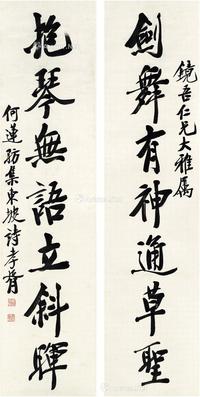 鏡吾仁兄大雅屬
劍舞有神通草聖
抱琴無語立斜暉
何蓮舫集東坡詩孝胥